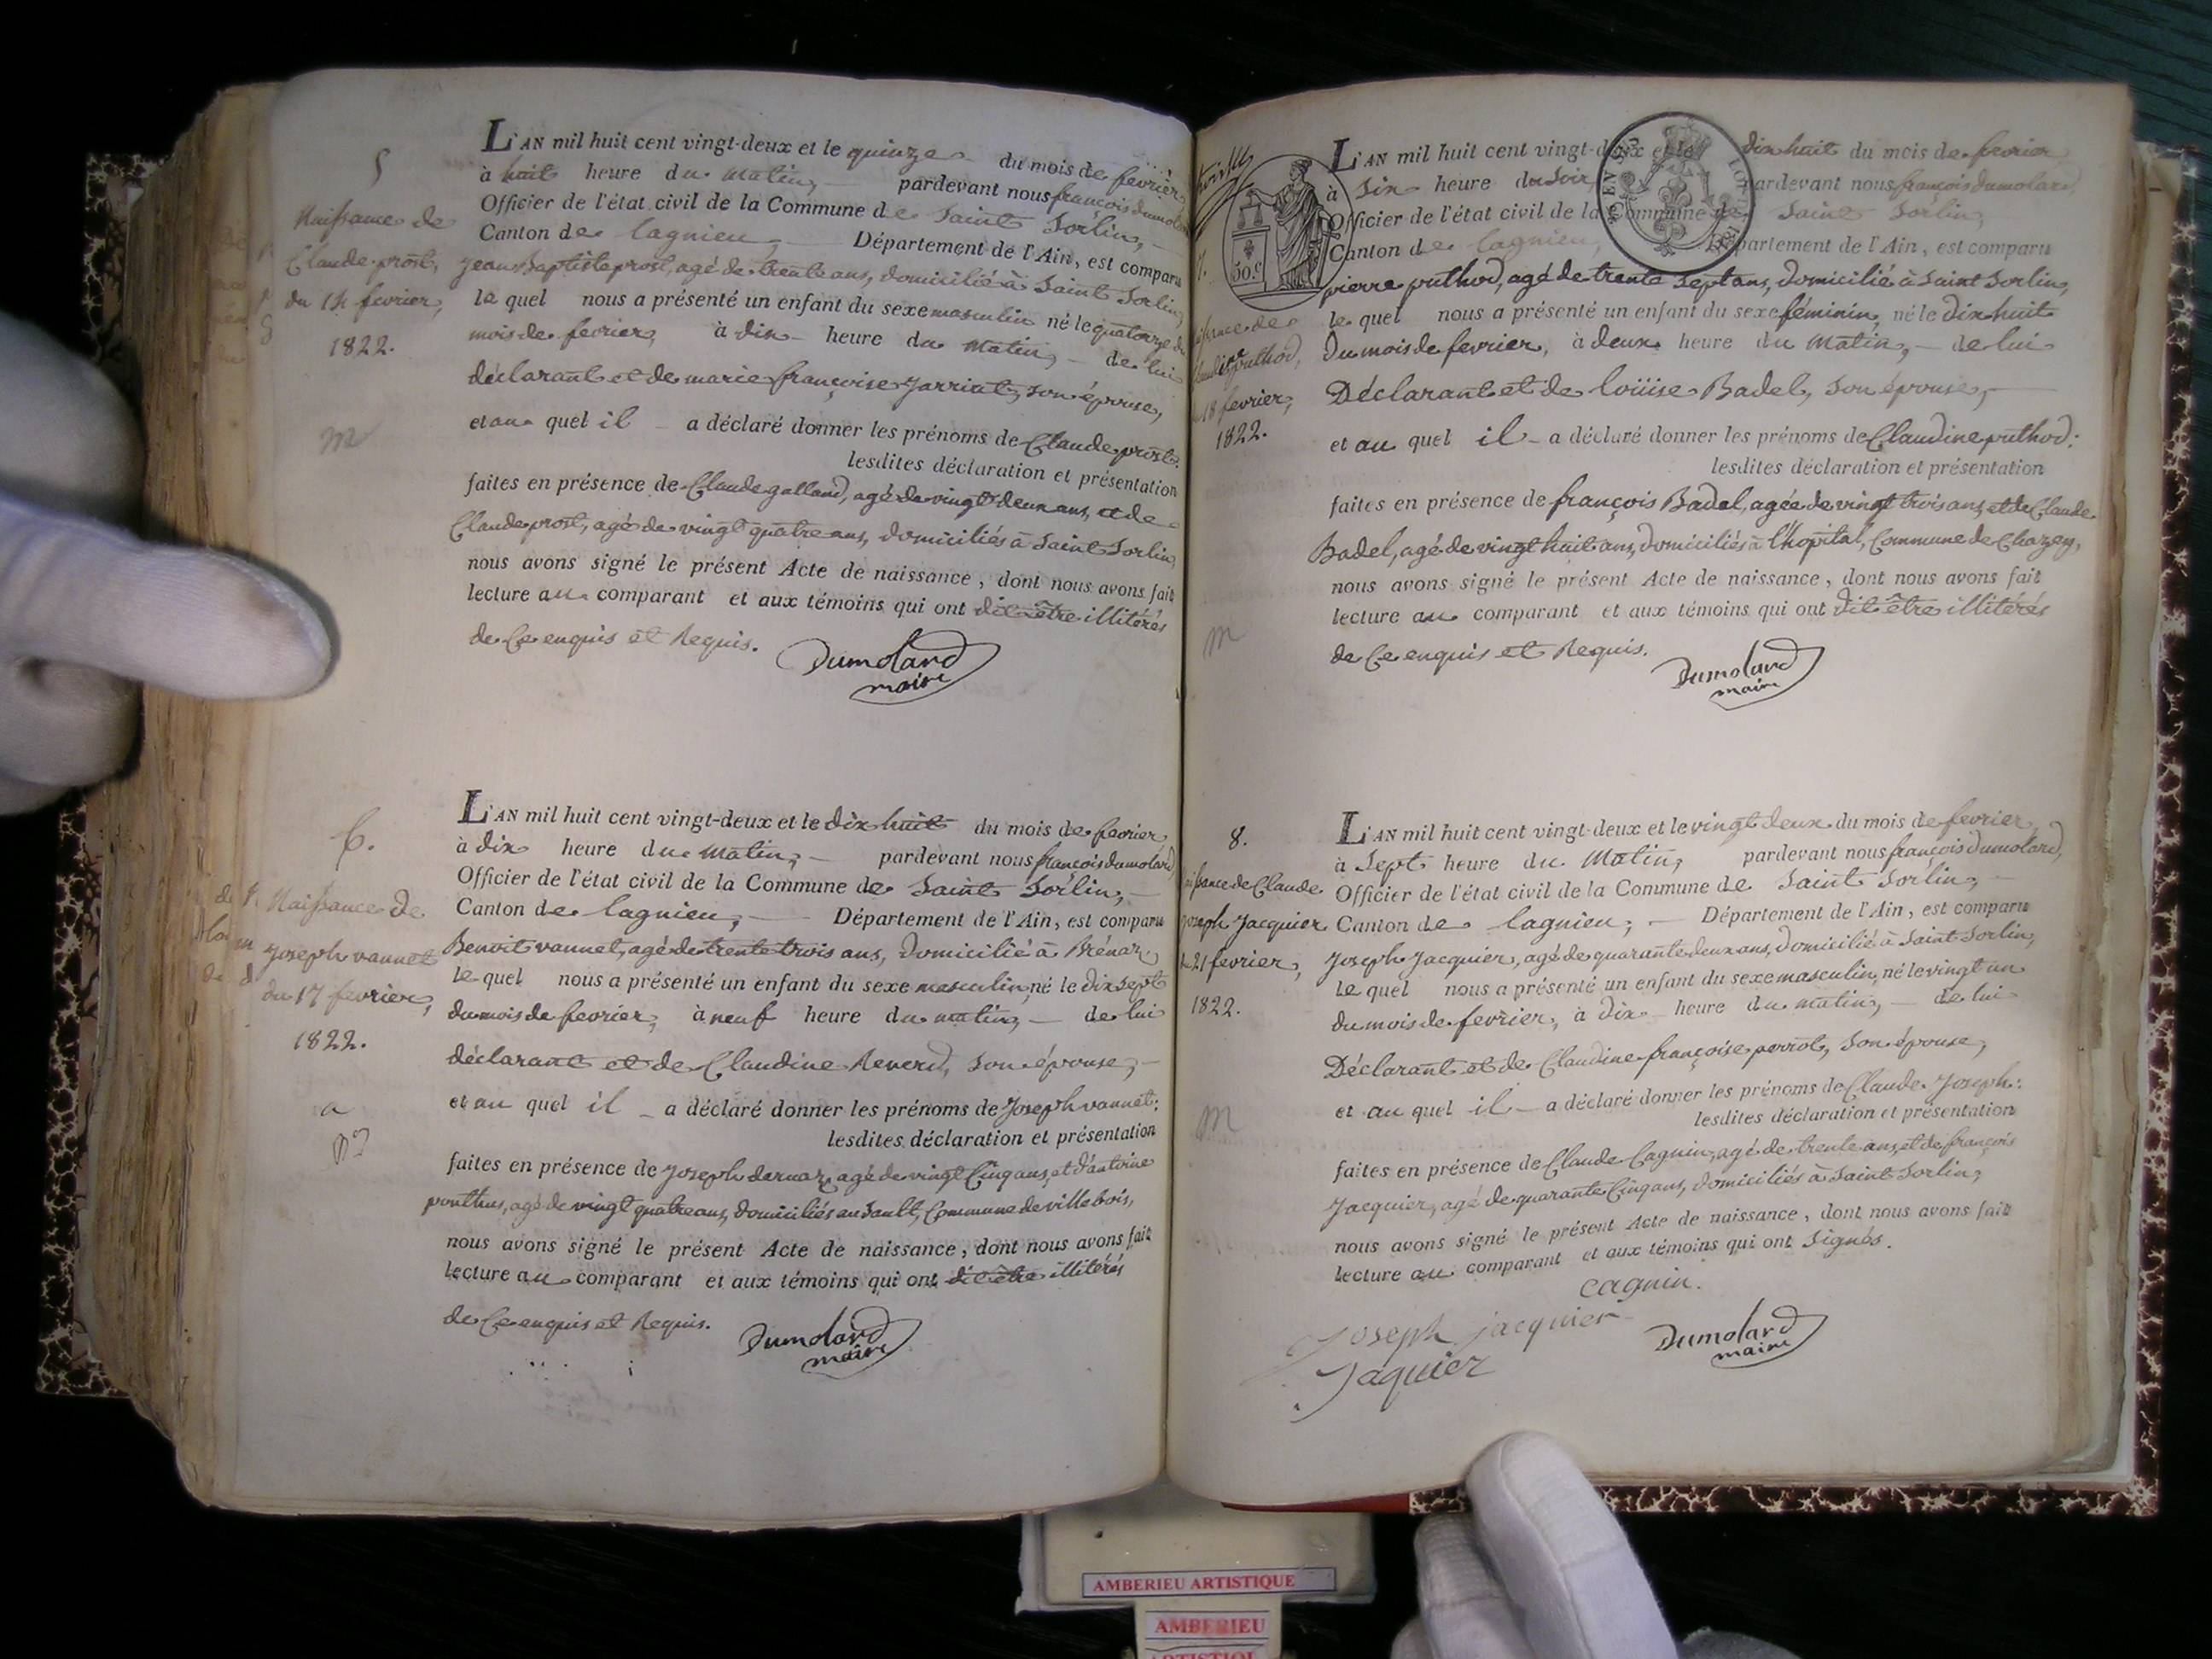 5
Naissance de
Claude prost,
du 14 fevrier,
1822.
m
L'AN mil huit cent vingt-deux et le quinze du mois de fevrier
à huit heure du matin, pardevant nous françois dumolard
Officier de l'état civil de la Commune de Saint Sorlin,
Canton de lagnieu, Département de l'Ain, est comparu
jean Baptiste prost, agé de trente ans, domicilié à Saint Sorlin,
le quel nous a présenté un enfant du sexe masculin né le quatorze du
mois de fevrier, à dix heure du matin, de lui
déclarant et de marie françoise jarriat, son épouse,
et au quel il a déclaré donner les prénoms de Claude prost:
lesdites déclaration et présentation
faites en présence de Claude galland, agé de vingt deux ans, et de
Claude prost, agé de vingt quatre ans, domiciliés à Saint Sorlin,
nous avons signé le présent Acte de naissance, dont nous avons fait
lecture au comparant et aux témoins qui ont dit être illitérés
de Ce enquis et Requis.
Dumolard
maire
6.
Naissance de
joseph vannet
du 17 fevrier,
1822.
a
L'AN mil huit cent vingt-deux et le dix huit du mois de fevrier
à dix heure du matin, pardevant nous françois dumolard,
Officier de l'état civil de la Commune de Saint Sorlin,
Canton de lagnieu, Département de l'Ain, est comparu
Benoit vannet, agé de trente trois ans, domicilié à Brénaz,
le quel nous a présenté un enfant du sexe masculin, né le dix sept
du mois de fevrier, à neuf heure du matin, de lui
déclarant et de Claudine Reverd, son épouse,
et au quel il a déclaré donner les prénoms de joseph vannet:
lesdites déclaration et présentation
faites en présence de joseph darnaz, agé de vingt Cinq ans, et d'antoine
ponthus, agé de vingt quatre ans, domiciliés au Sault, Commune de villebois,
nous avons signé le présent Acte de naissance, dont nous avons fait
lecture au comparant et aux témoins qui ont dit être illitérés
de Ce enquis et Requis.
Dumolard
maire
50.c
18 fevrier,
1822.
m
L'AN mil huit cent vingt-deux et le dix huit du mois de fevrier
à Six heure du Soir, pardevant nous françois dumolard,
Officier de l'état civil de la Commune de Saint Sorlin,
Canton de lagnieu, Département de l'Ain, est comparu
pierre puthod, agé de trente Sept ans, domicilié à Saint Sorlin,
le quel nous a présenté un enfant du sexe féminin, né le dix huit
du mois de fevrier, à deux heure du matin, de lui
Déclarant et de loüise Badel, Son épouse,
et au quel il a déclaré donner les prénoms de Claudine puthod:
lesdites déclaration et présentation
faites en présence de françois Badel, agée de vingt trois ans, et de Claude
Badel, agé de vingt huit ans, domiciliés à l'hopital, Commune de Chazey,
nous avons signé le présent Acte de naissance, dont nous avons fait
lecture au comparant et aux témoins qui ont dit être illitérés
de Ce enquis et Requis.
Dumolard
maire
8.
issance de Claude
joseph jacquier
21 fevrier,
1822.
m
L'AN mil huit cent vingt-deux et le vingt deux du mois de fevrier
à Sept heure du matin, pardevant nous françois dumolard,
Officier de l'état civil de la Commune de Saint Sorlin,
Canton de lagnieu, Département de l'Ain, est comparu
joseph jacquier, agé de quarante deux ans, domicilié à Saint Sorlin,
le quel nous a présenté un enfant du sexe masculin, né le vingt un
du mois de fevrier, à dix heure du matin, de lui
Déclarant et de Claudine françoise perrot, Son épouse,
et au quel il a déclaré donner les prénoms de Claude joseph:
lesdites déclaration et présentation
faites en présence de Claude Cagnin, agé de trente ans, et de françois
jacquier, agé de quarante Cinq ans, domiciliés à Saint Sorlin,
nous avons signé le présent Acte de naissance, dont nous avons fait
lecture au comparant et aux témoins qui ont Signés.
cagnin.
joseph jacquier
Jaquier
Dumolard
maire
AMBERIEU ARTISTIQUE
AMBERIEU
ARTISTIQUE